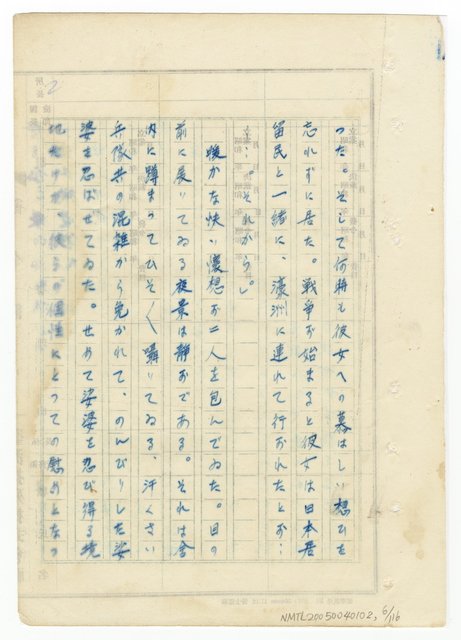 つた。そして何時も彼女への慕はしい想ひを
忘れずに居た。戦争が始まると彼女は日本居
留民と一緒に、濠洲に連れて行かれたとか…
…。それから。
暖かな快い懐想が二人を包んでゐた。目の
前に展いてゐる夜景は静かである。それは舎
内に蹲まつてひそ〱囁いてゐる、汗くさい
兵隊共の混雑から免かれて、のんびりした姿
姿を忍ばせてゐた。せめて娑婆を忍び得る境
地だけが彼らの個性にとつての慰めとなつ
2
NMTL20050040102, 6/116